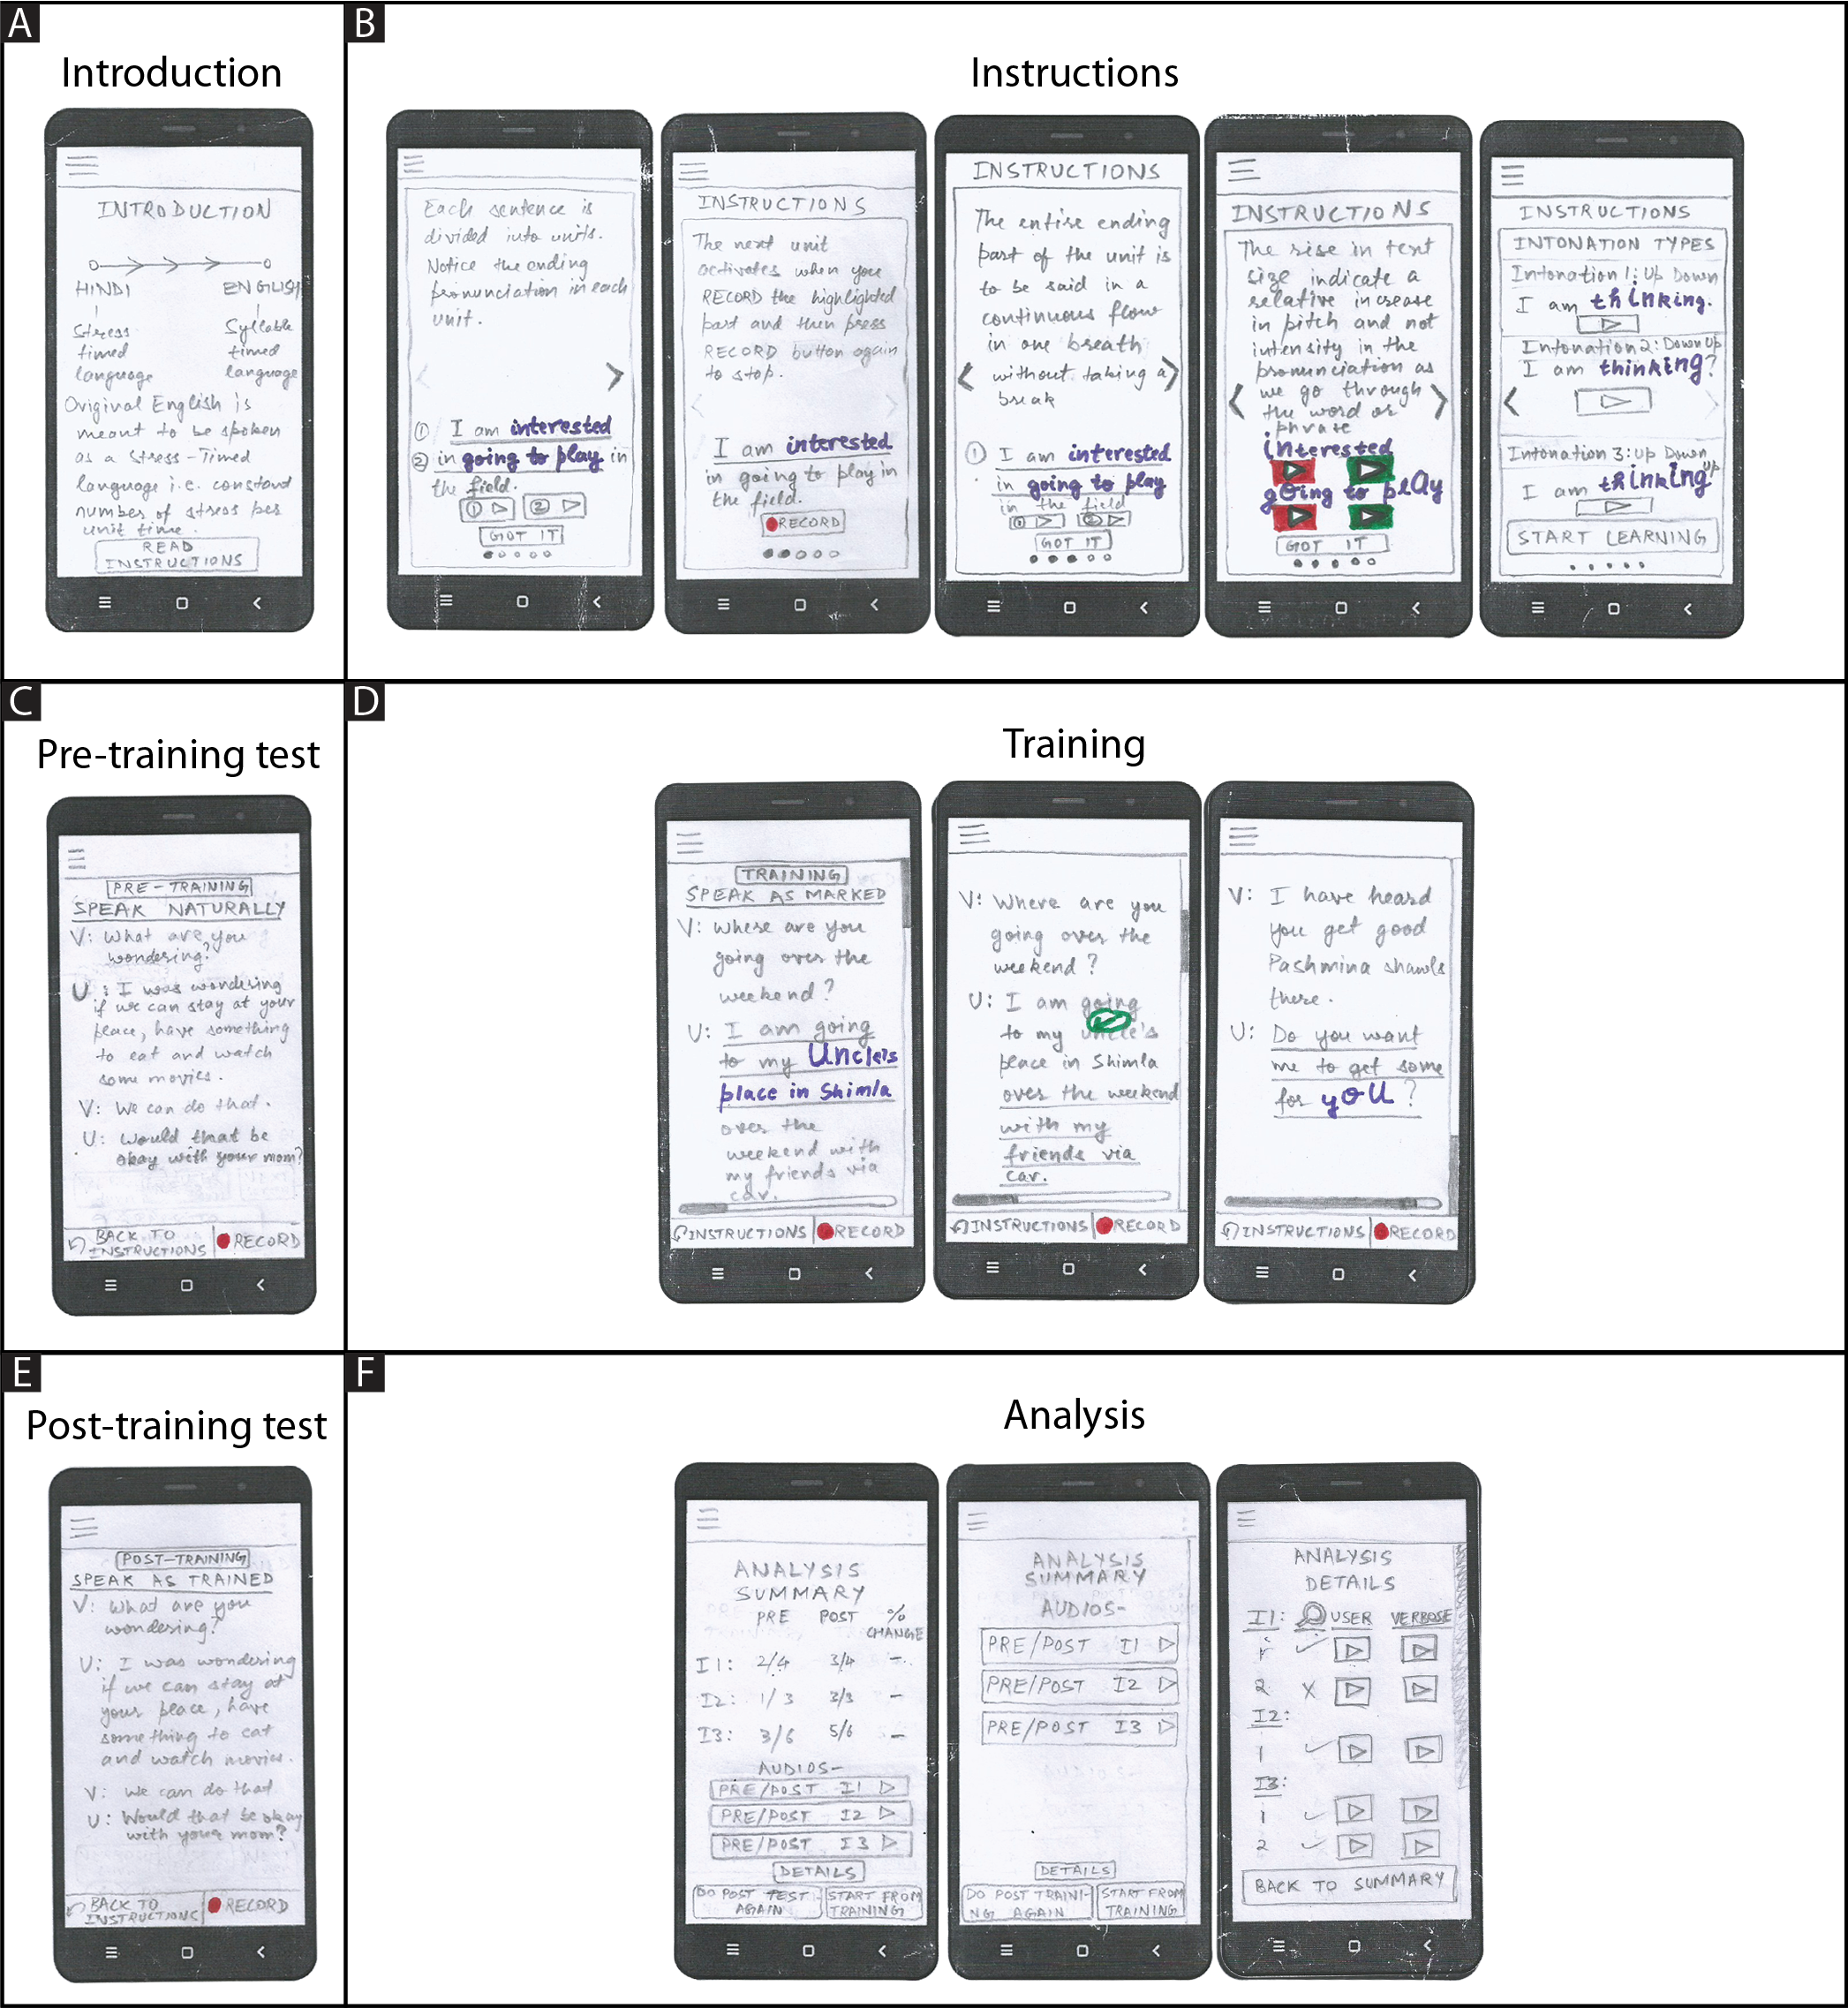 A
Introduction
INTRODUCTION
HINDI
ENGLISH
Stress
timed
language
Syllable
timed
language
Original English is
meant to be spoken
as a stress-Timed
language i.e. constant
number of stress per
unit time.
READ
INSTRUCTIONS
B
Instructions
Each sentence is
divided into units.
Notice the ending
pronunciation in each
unit.
① I am interested
② in going to play in
the field.
① ②
GOT IT
INSTRUCTIONS
The next unit
activates when you
RECORD the highlighted
part and then press
RECORD button again
to stop.
I am interested
in going to play in
the field.
RECORD
INSTRUCTIONS
The entire ending
part of the unit is
to be said in a
continuous flow
in one breath
without taking a
break
① I am interested
in going to play
in the field
① ②
GOT IT
INSTRUCTIONS
The rise in text
size indicate a
relative increase
in pitch and not
intensity in the
pronunciation as
we go through
the word or
phrase
interested
going to play
GOT IT
INSTRUCTIONS
INTONATION TYPES
Intonation 1: Up Down
I am thinking.
Intonation 2: Down Up
I am thinking?
Intonation 3: Up Down Up
I am thinking
START LEARNING
C
Pre-training test
PRE-TRAINING
SPEAK NATURALLY
V: What are you
wondering?
U: I was wondering
if we can stay at your
place, have something
to eat and watch
some movies.
V: We can do that.
U: Would that be
okay with your mom?
BACK TO
INSTRUCTIONS
RECORD
D
Training
TRAINING
SPEAK AS MARKED
V: Where are you
going over the
weekend?
U: I am going
to my Uncle's
place in Shimla
over the
weekend with
my friends via
car.
INSTRUCTIONS
RECORD
V: Where are you
going over the
weekend?
U: I am going
to my uncle's
place in Shimla
over the weekend
with my
friends via
car.
INSTRUCTIONS
RECORD
V: I have heard
you get good
Pashmina shawls
there.
U: Do you want
me to get some
for you?
INSTRUCTIONS
RECORD
E
Post-training test
POST-TRAINING
SPEAK AS TRAINED
V: What are you
wondering?
U: I was wondering
if we can stay at
your place, have
something to eat
and watch movies.
V: We can do that
U: Would that be okay
with your mom?
BACK TO
INSTRUCTIONS
RECORD
F
Analysis
ANALYSIS
SUMMARY
PRE POST %
CHANGE
I1: 2/4 3/4 -
I2: 1/3 3/3 -
I3: 3/6 5/6 -
AUDIOS-
PRE/POST I1
PRE/POST I2
PRE/POST I3
DETAILS
DO POST TEST
AGAIN
START FROM
TRAINING
ANALYSIS
SUMMARY
AUDIOS-
PRE/POST I1
PRE/POST I2
PRE/POST I3
DETAILS
DO POST TRAINI-
NG AGAIN
START FROM
TRAINING
ANALYSIS
DETAILS
I1: USER VERBOSE
1
2
I2:
1
I3:
1
2
BACK TO SUMMARY